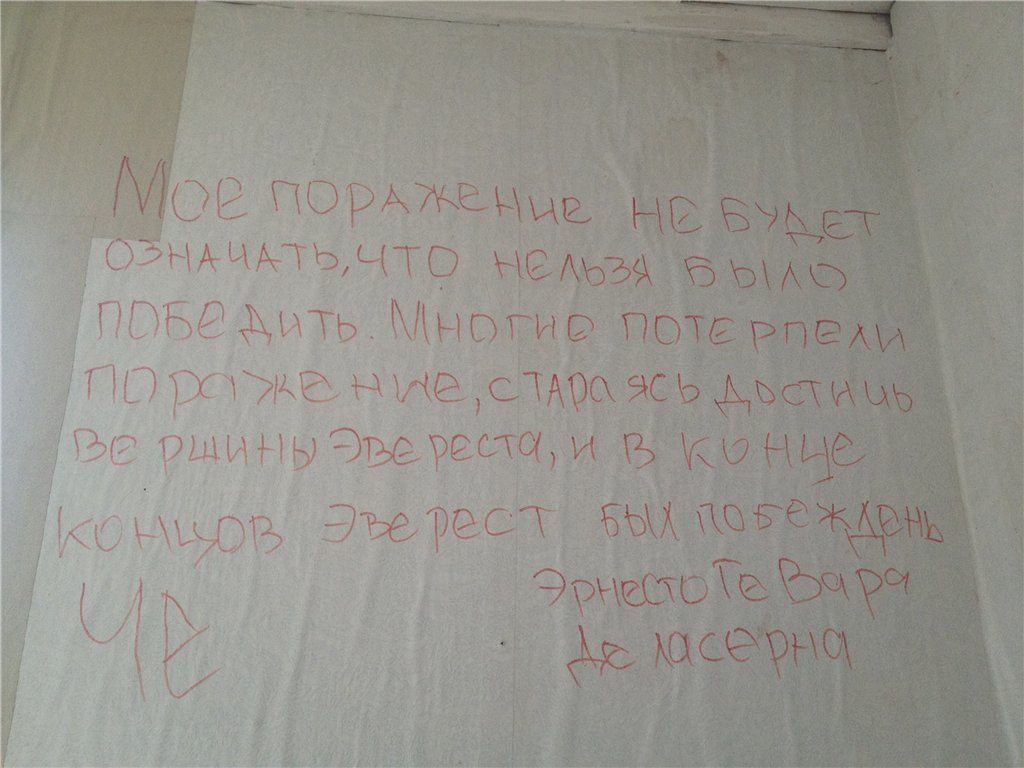 Мое поражение не будет
означать, что нельзя было
победить. Многие потерпели
поражение, стараясь достичь
вершины Эвереста, и в конце
концов Эверест был побеждень
Эрнесто Ге Вара
Де ласерна
ЧЕ